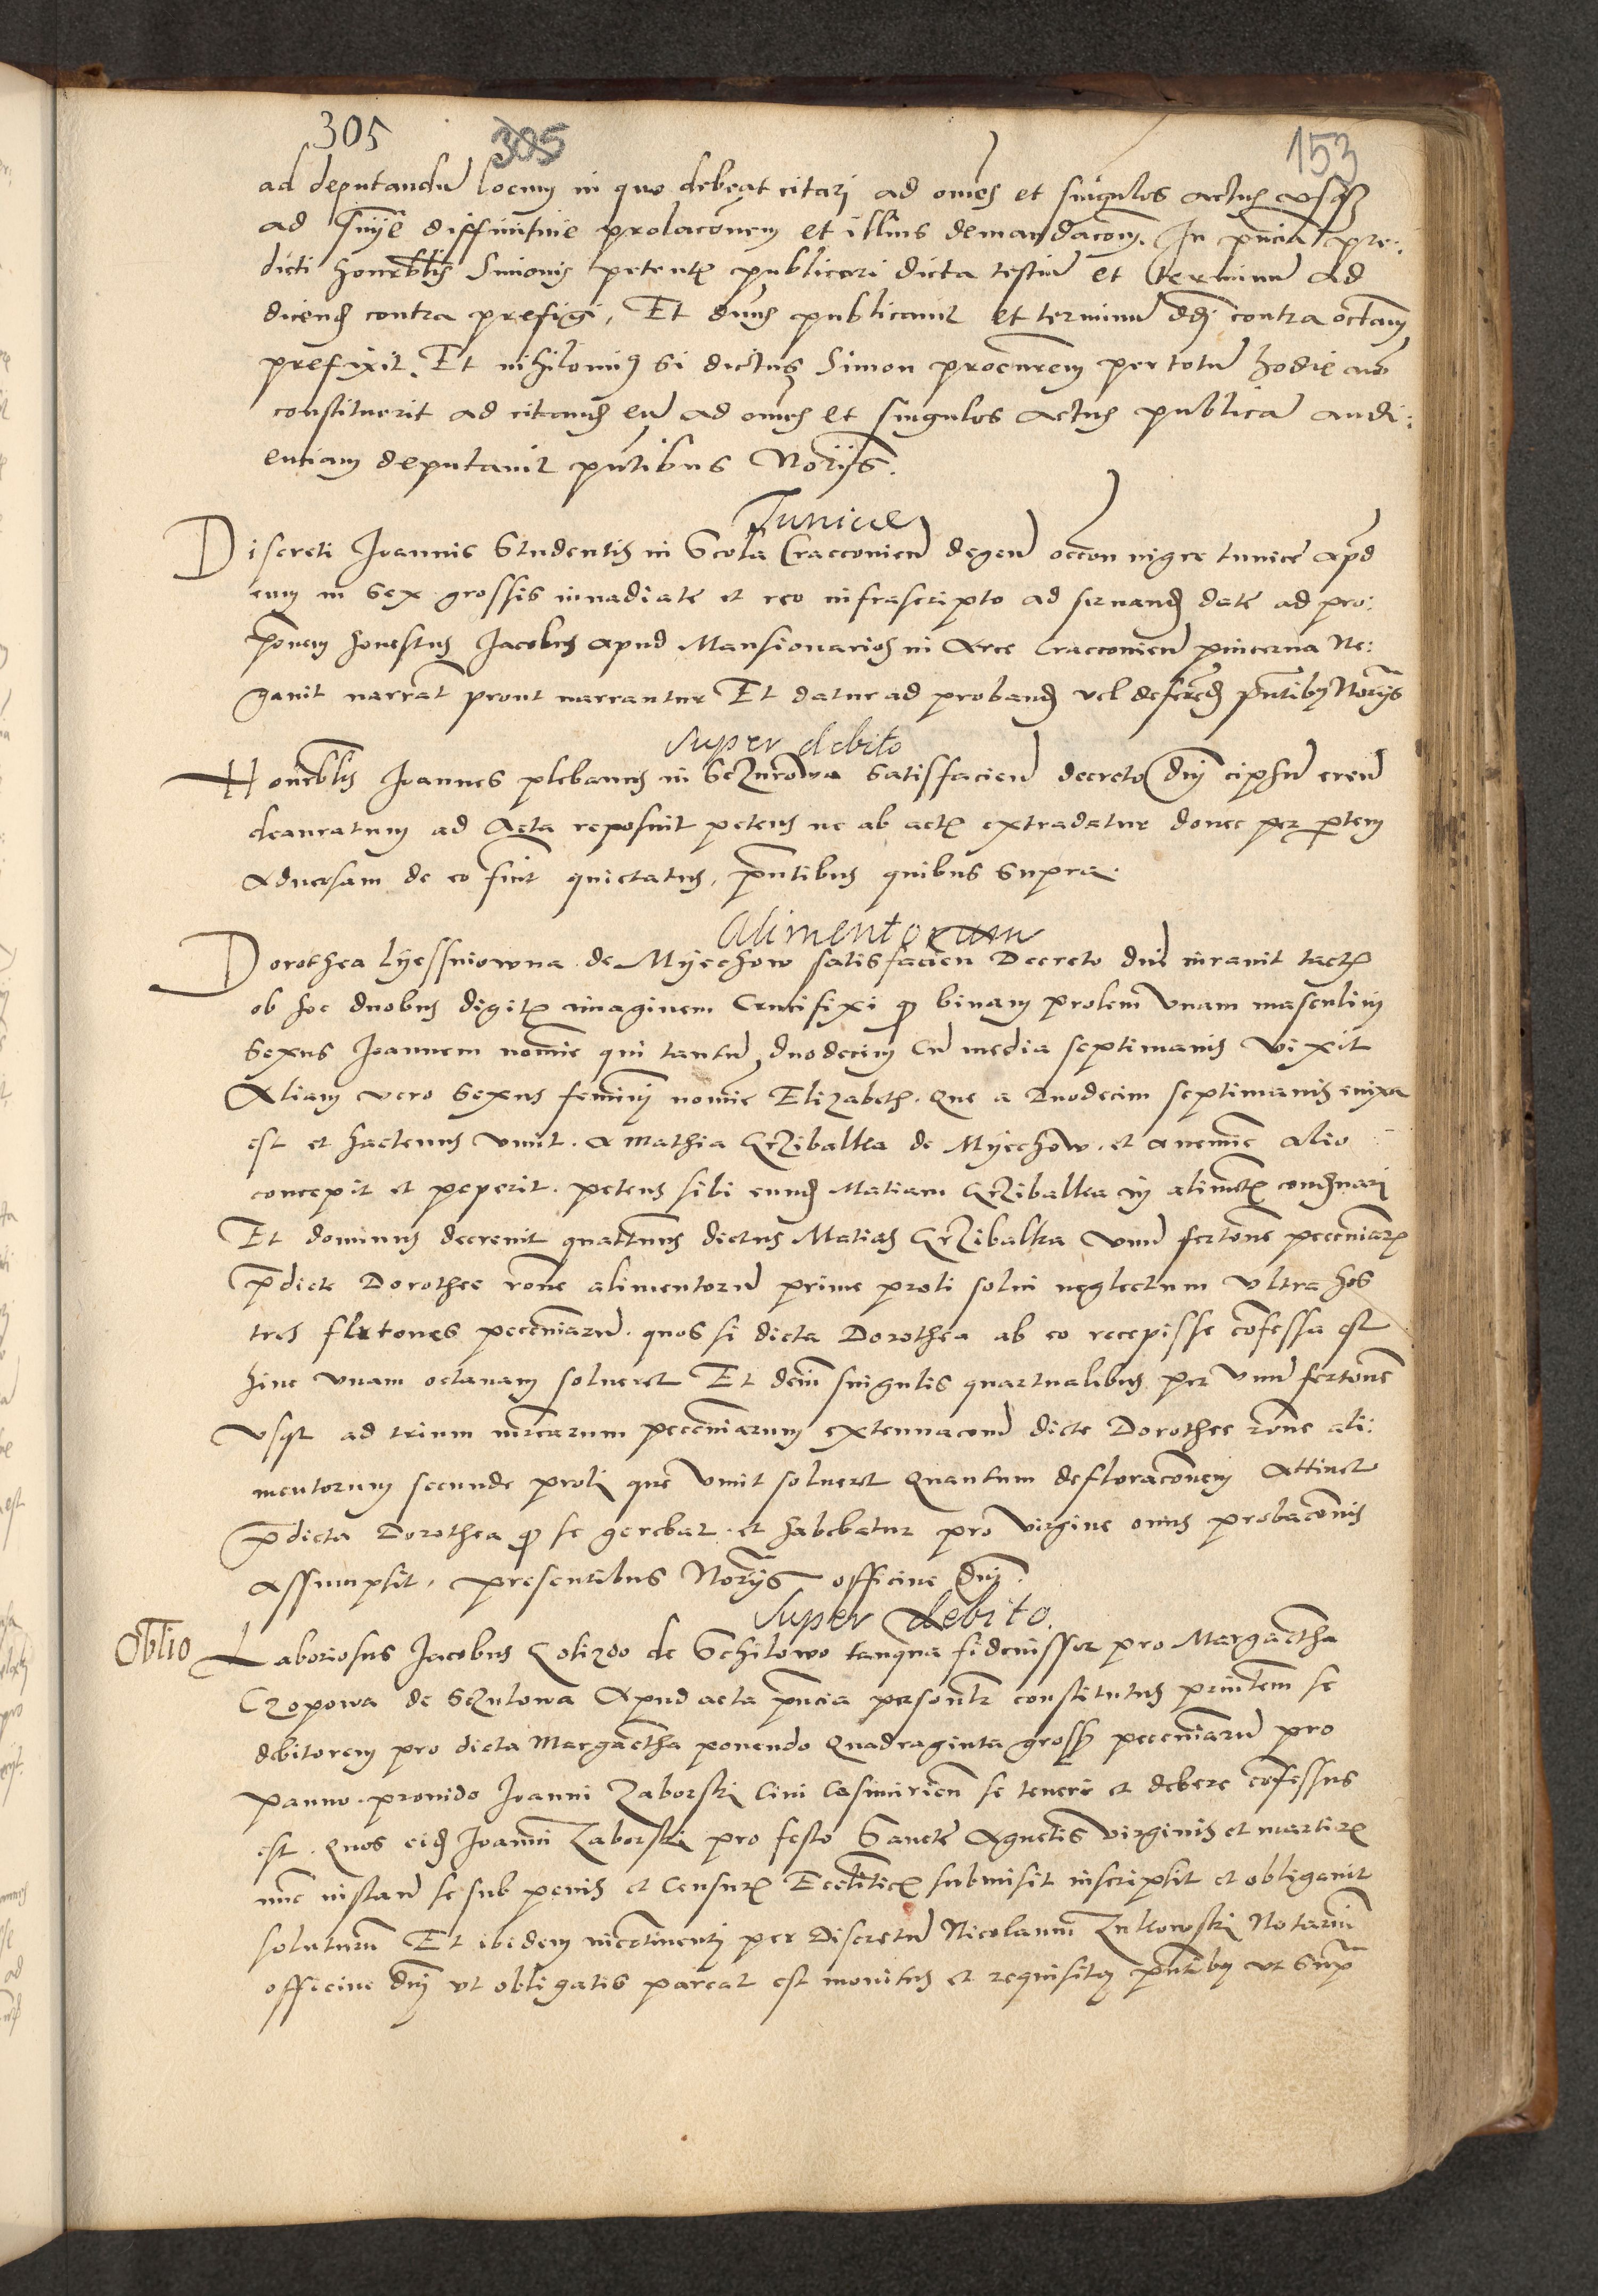 305 305 153
ad deputandū locum in quo debeat citari ad om̄es et singulos actus usq3
ad sn̄ie diffinitiue prolacōnem et illius demandacōm. In pn̄cia pre:
dicti honorabilis Simonis petentis publicari dicta testiū et terminū ad
dicend contra prefigi, Et dn̄us publicauit et terminū dd̄i contra octauā
prefixit. Et nihilomi9 si dictus Simon procurem per totū hodie nō
constituerit ad citand eū ad om̄es et singulos actus publicā audi:
entiam deputauit pn̄tibus Norijs.
Tunice
Discreti Joannis Studentis in Scola Cracouien degen occon nigre tunice apd
eum in sex grossis inuadiate et reo infrascripto ad seruand date ad pro:
ponem honestus Jacobus apud Mansionarios in Arce Cracouien pincerna Ne:
gauit narrat prout narrantur Et datur ad proband vel deferēd pn̄tib9 Norijs
super debito
Honorabilis Joannes plebanus in satisfacien decreto dn̄j ciphū ereū
deauratum ad Acta reposuit petens ne ab actis extradatur donec per ptem
aduersam de eo sint quietatus, pn̄tibus quibus supra.
Alimentorum
Dorothea Lyessniowna de Myechow satisfacien Decreto dn̄i iurauit tactis
ob hoc duobus digitis imaginem Crucifixi q binam prolem vnam masculini
sexus Joannem nomine qui tantū duodecim cū media septimanis vixit
Aliam vero sexus feminini nomine Elizabeth. Que a Duodecim septimanis enixa
est et hactenus viuit. a Mathia Grzibalka de Myechow. et a nemine alio
concepit et peperit. petens sibi eund Matiam Grzibalka in alimētis condemnari
Et dominus decreuit quattenus dictus Matias Grzibalka vnū fertonē pecuniarū
p̄dicte Dorothee rōne alimentorū prime proli solui neglectum vltra hos
tres fertones pecuniarū. quos si dicta Dorothea ab eo recepisse cōfessa est
hinc vnam octauam solueret Et dein singulis quartualibus per vnū fertonē
vsq ad trium mrcarum pecuniarum extenuacōm dicte Dorothee rōne ali:
mentorum secunde proli que viuit solueret Quantum defloracōnem attinet
p̄dicta Dorothea q se gerebat et habebatur pro virgine onus probacōnis
assumpsit, presentibus Norijs officine Dn̄i.
Super debito.
Oblio Laboriosus Jacobus de tanqua fideiussor pro Margaretha
Czopowa de apud acta pn̄cia personlr constitutus principalem se
debitorem pro dicta Margaretha ponendo Quadraginta gross pecuniarū pro
panno. prouido Joanni Zaborski ciui Casimirien se teneri et debere cōfessus
est. Quos eid Joanni Zaborski pro festo Sancte Agnetis virginis et martiris
nūc instan se sub penis et Censuris Ecclīticis submisit inscripsit et obligauit
soluturū Et ibidem incōtinenti per Discretū Nicolaum Zukowski Notariū
officine dn̄j vt obligatis pareat est monitus et requisit9 pn̄tib9 vt supra